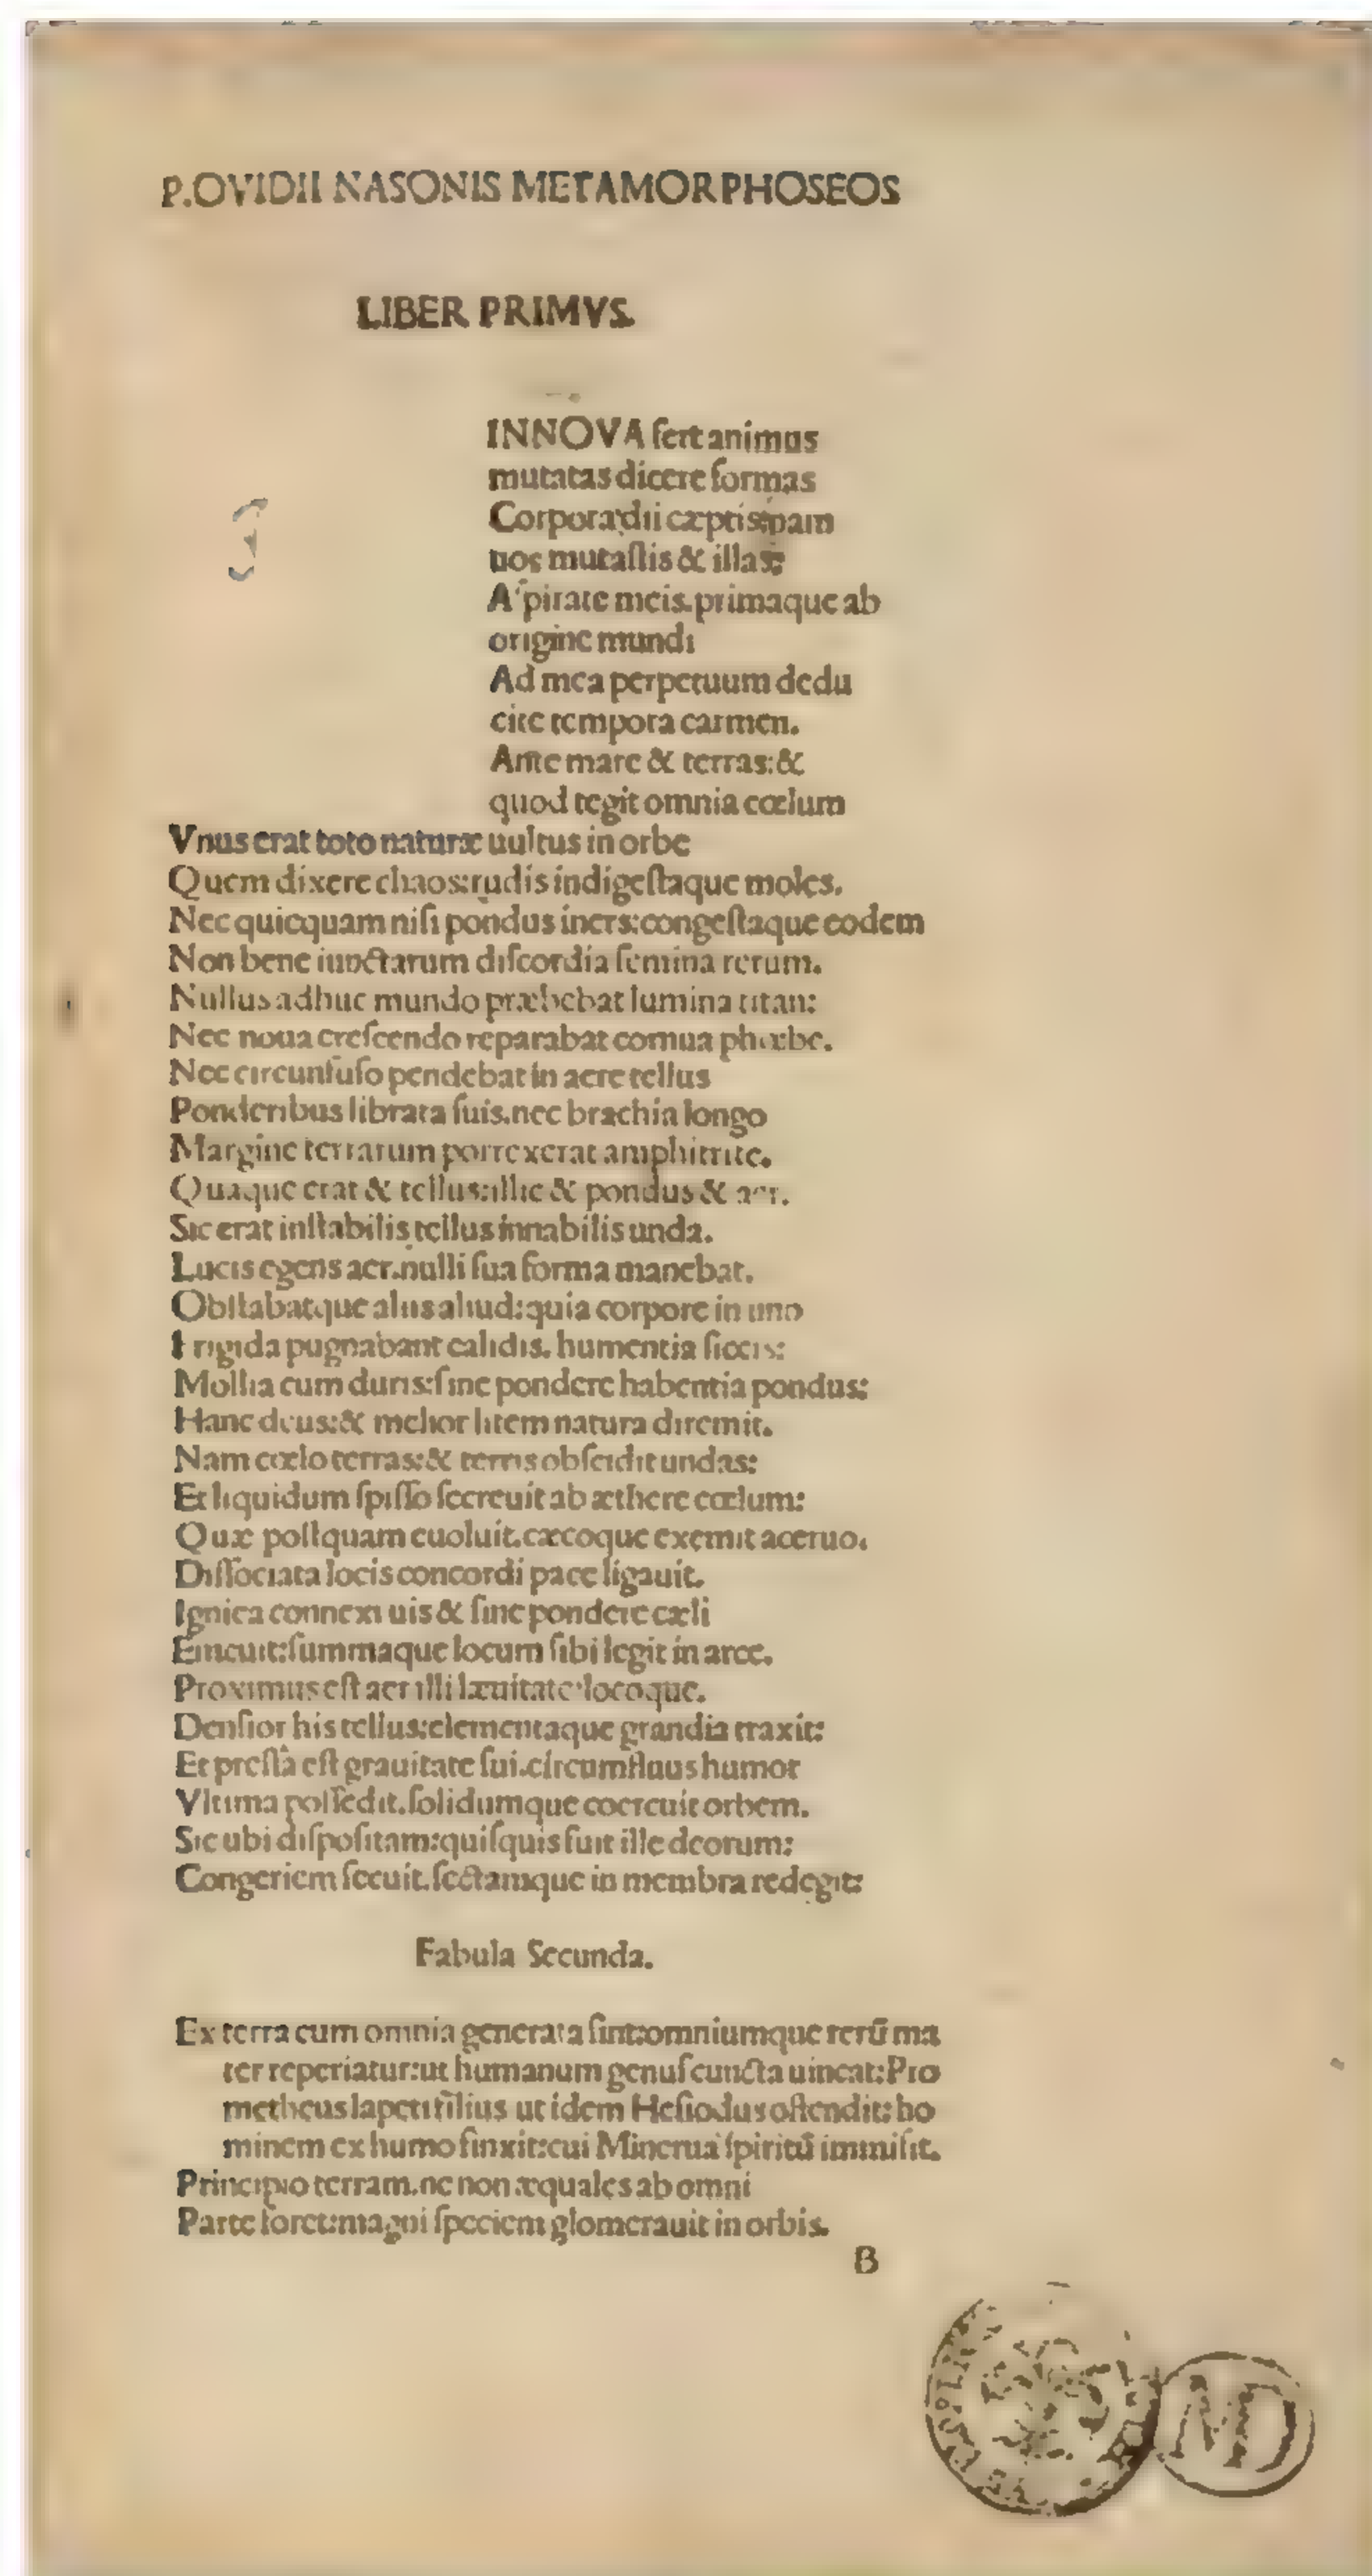 P.OVIDII NASONIS METAMORPHOSEOS
LIBER PRIMVS.
INNOVA fert animus
mutatas dicere formas
Corpora:dii cæptis:nam
uos mutaſtis & illas:
Aſpirate meis.primaque ab
origine mundi
Ad mea perpetuum dedu
cite tempora carmen.
Ante mare & terras:&
quod tegit omnia cœlum
Vnus erat toto naturæ uultus in orbe
Quem dixere chaos:rudis indigeſtaque moles.
Nec quicquam niſi pondus iners:congeſtaque eodem
Non bene iunctarum diſcordia ſemina rerum.
Nullus adhuc mundo præbebat lumina titan:
Nec noua creſcendo reparabat cornua phœbe.
Nec circunfuſo pendebat in aere tellus
Ponderibus librata ſuis.nec brachia longo
Margine terrarum porrexerat amphitrite.
Quaque erat & tellus:illic & pondus & aer.
Sic erat inſtabilis tellus innabilis unda.
Lucis egens aer.nulli ſua forma manebat.
Obſtabatque aliis aliud:quia corpore in uno
Frigida pugnabant calidis. humentia ſiccis:
Mollia cum duris:ſine pondere habentia pondus:
Hanc deus:& melior litem natura diremit.
Nam cœlo terras:& terris obſcidit undas:
Et liquidum ſpiſſo ſecreuit ab æthere cœlum:
Quæ poſtquam euoluit.cæcoque exemit aceruo.
Diſſociata locis concordi pace ligauit.
Ignica connexi uis & ſine pondere cæli
Emicuit:ſummaque locum ſibi legit in arce.
Proximus eſt aer illi læuitate:locoque.
Denſior his tellus:elementaque grandia traxit:
Et preſſa eſt grauitate ſui.circumfluus humor
Vltima poſſedit.ſolidumque coercuit orbem.
Sic ubi diſpoſitam:quiſquis fuit ille deorum:
Congeriem ſecuit.ſectamque in membra redegit:
Fabula Secunda.
Ex terra cum omnia generata ſint:omniumque rerū ma
ter reperiatur:ut humanum genuſ cuncta uincat:Pro
metheus Iapeti filius ut idem Heſiodus oſtendit:ho
minem ex humo finxit:cui Minerua ſpiritū immiſit.
Principio terram.ne non æquales ab omni
Parte foret:magni ſpeciem glomerauit in orbis.
B
MD